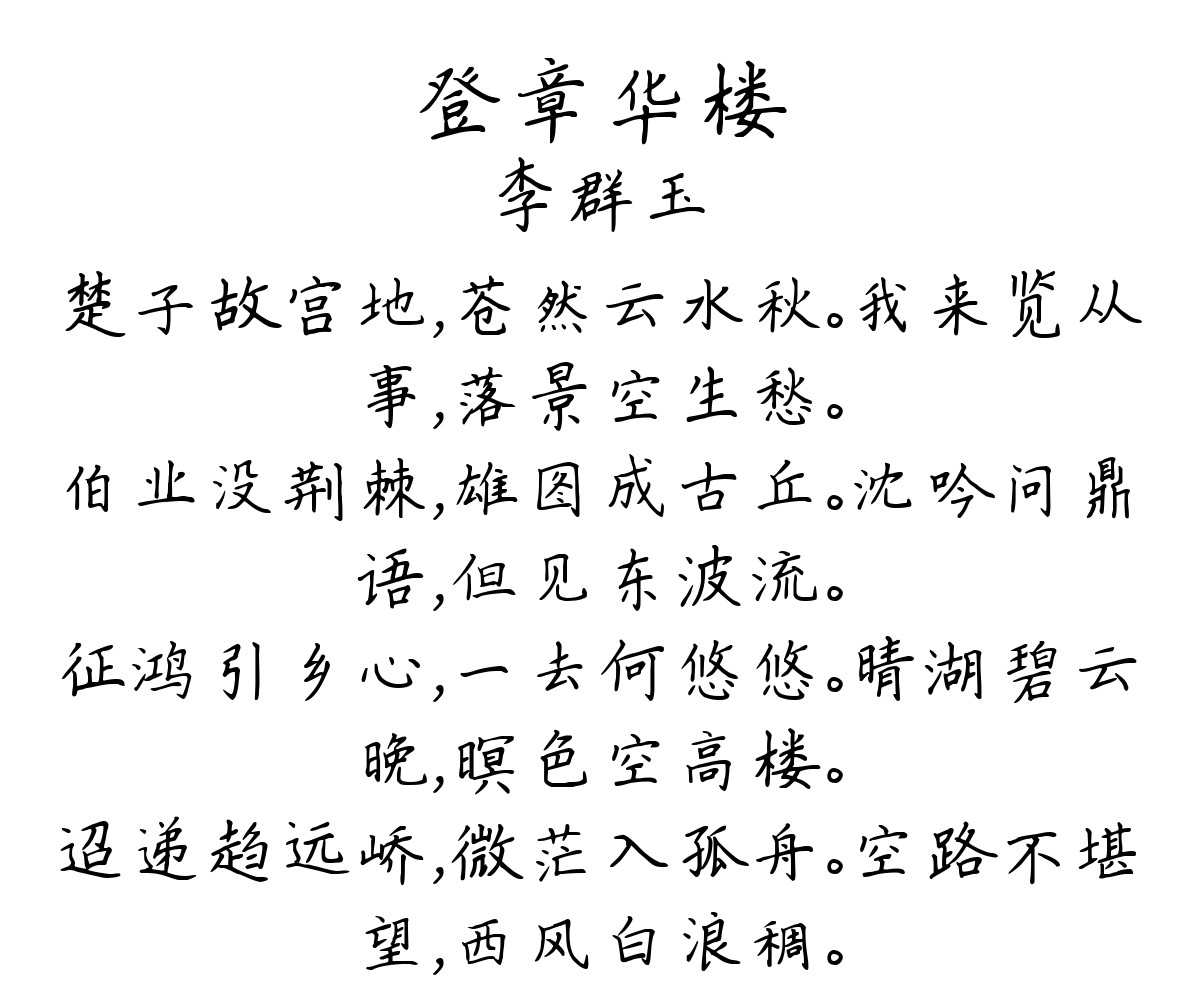 登章华楼
李群玉
楚子故宫地,苍然云水秋。我来览从
事,落景空生愁。
伯业没荆棘,雄图成古丘。沈吟问鼎
语,但见东波流。
征鸿引乡心,一去何悠悠。晴湖碧云
晚,暝色空高楼。
迢递趋远峤,微茫入孤舟。空路不堪
望,西风白浪稠。